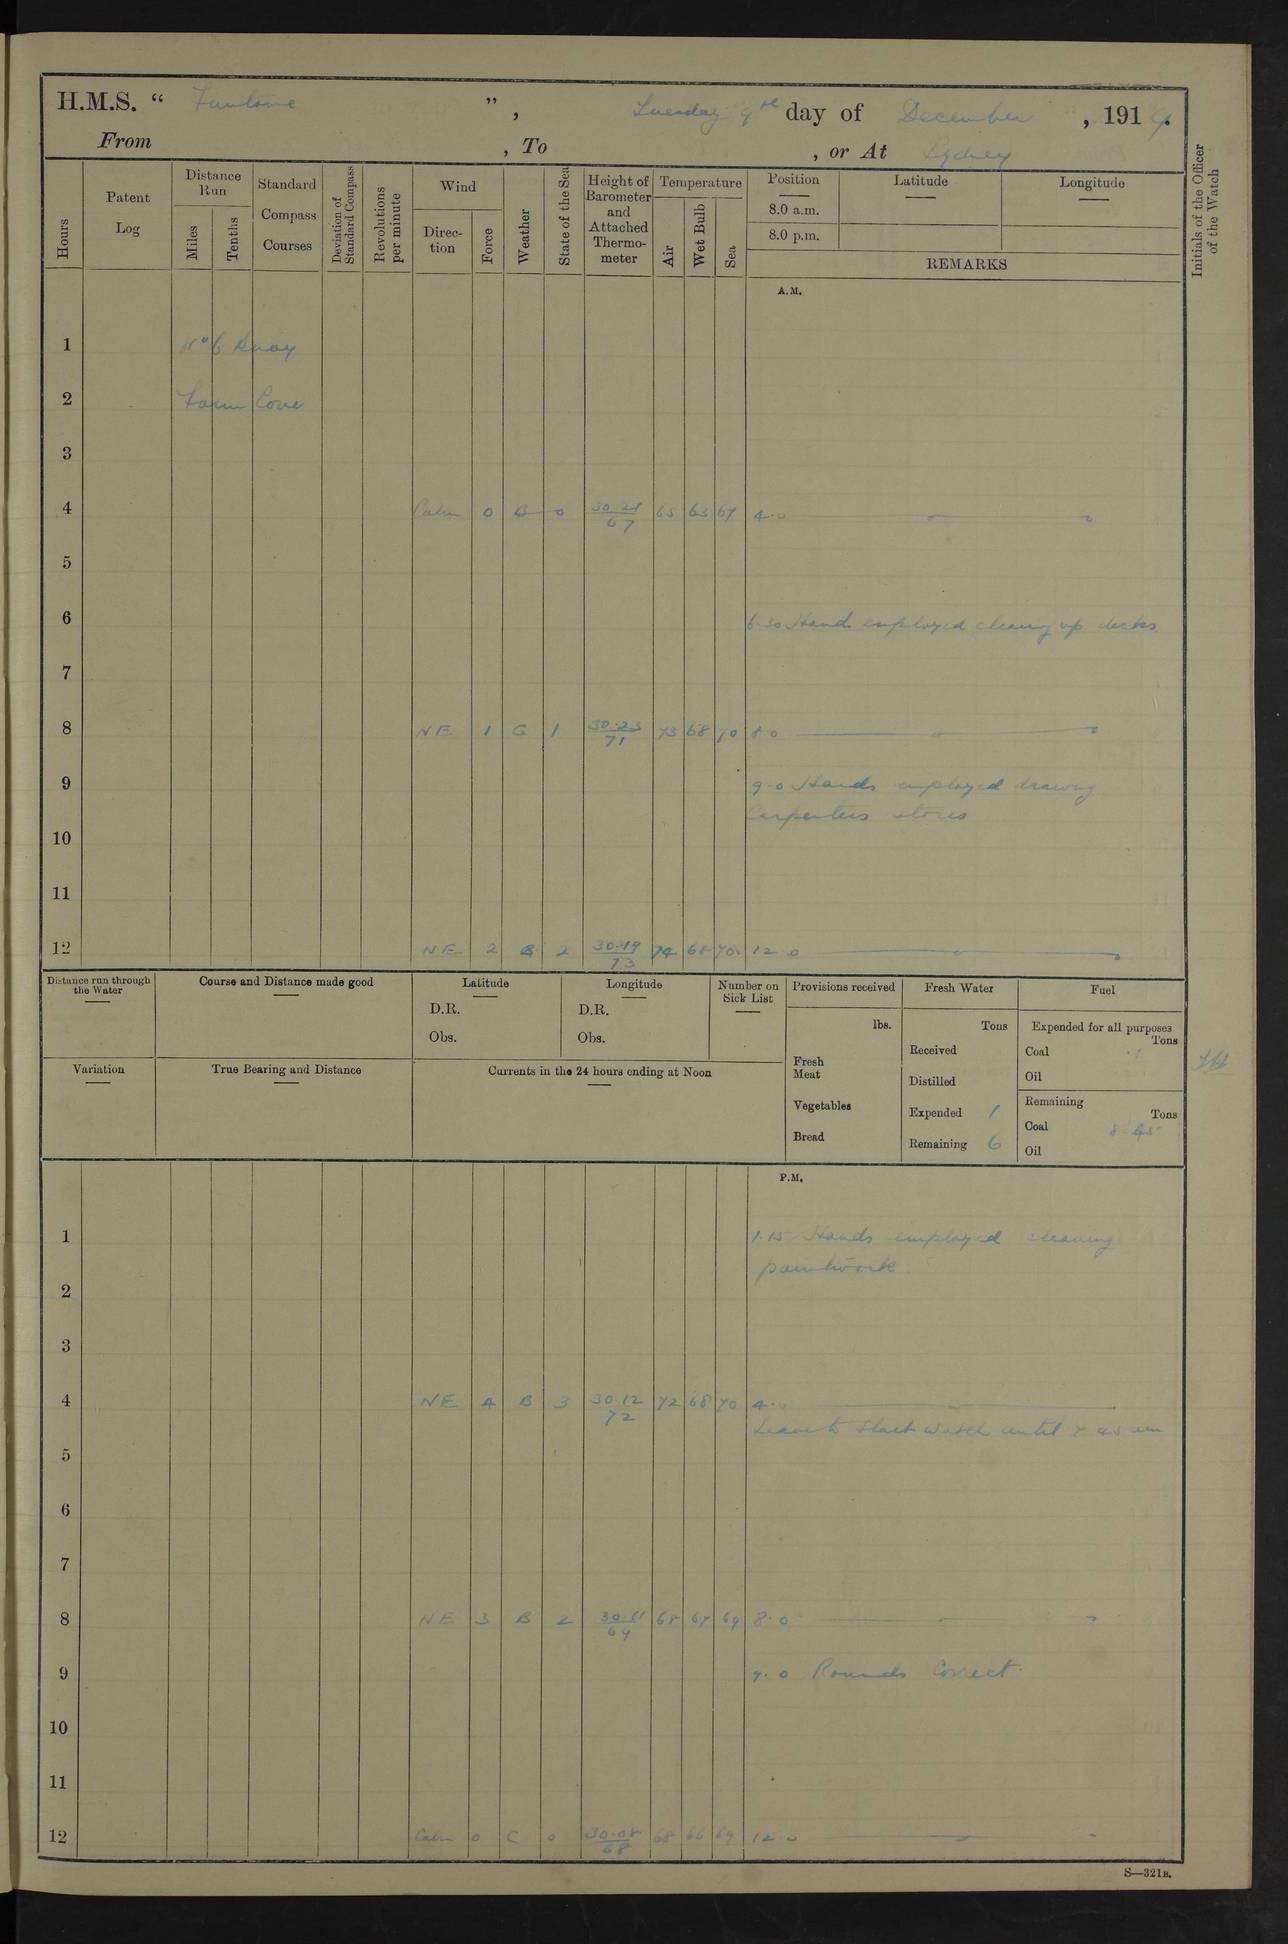 H.M.S. “ Fantome ”, Tuesday 9th day of December, 1919.
From , To , or At Sydney
Hours
Patent Log
Distance Run
Miles
Tenths
Standard Compass Courses
Deviation of Standard Compass
Revolutions per minute
Wind
Direction
Force
Weather
State of the Sea
Height of Barometer and Attached Thermometer
Temperature
Air
Wet Bulb
Sea
Position
8.0 a.m.
8.0 p.m.
Latitude
Longitude
REMARKS
Initials of the Officer of the Watch
A.M.
1 No 6 Buoy
2 Farm Cove
3
4 Calm 0 B 0 30.21 67 65 63 67 4.0
5
6 6.30 Hands employed cleaning up decks
7
8 NE 1 C 1 30.23 71 73 68 70 8.0
9 9.0 Hands employed drawing
Carpenters stores
10
11
12 NE 2 B 2 30.19 73 74 68 70 12.0
Distance run through the Water
Course and Distance made good
Latitude
D.R.
Obs.
Longitude
D.R.
Obs.
Number on Sick List
Variation
True Bearing and Distance
Currents in the 24 hours ending at Noon
Provisions received
lbs.
Fresh Meat
Vegetables
Bread
Fresh Water
Tons
Received
Distilled
Expended 1
Remaining 6
Fuel
Expended for all purposes
Tons
Coal .1
Oil
Remaining
Tons
Coal
Oil
P.M.
1 1.15 Hands employed cleaning
paintwork
2
3
4 NE 4 B 3 30.12 72 72 68 70 4.0
Leave to Start Watch until 7 45 am
5
6
7
8 NE 3 B 2 30.11 69 68 67 69 8.0
9 9.0 Rounds Correct.
10
11
12 Calm 0 C 0 30.08 68 68 66 69 12 0
S—321B.